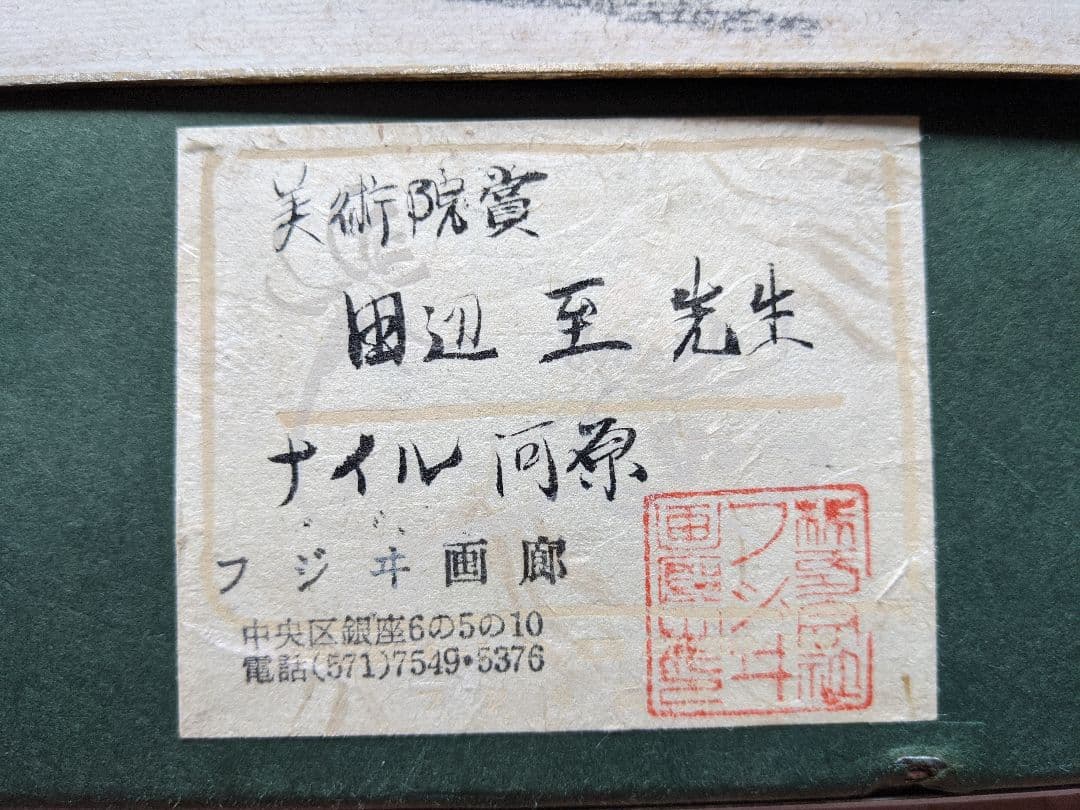 美術院賞
田辺 至 先生
ナイル河原
フジヰ画廊
中央区銀座6の5の10
電話(571)7549・5376
株式会社
フジヰ
画廊